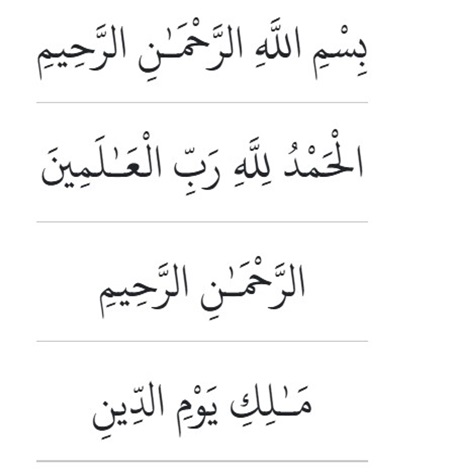 بِسْمِ اللَّهِ الرَّحْمَـٰنِ الرَّحِيمِ
الْحَمْدُ لِلَّهِ رَبِّ الْعَـٰلَمِينَ
الرَّحْمَـٰنِ الرَّحِيمِ
مَـٰلِكِ يَوْمِ الدِّينِ